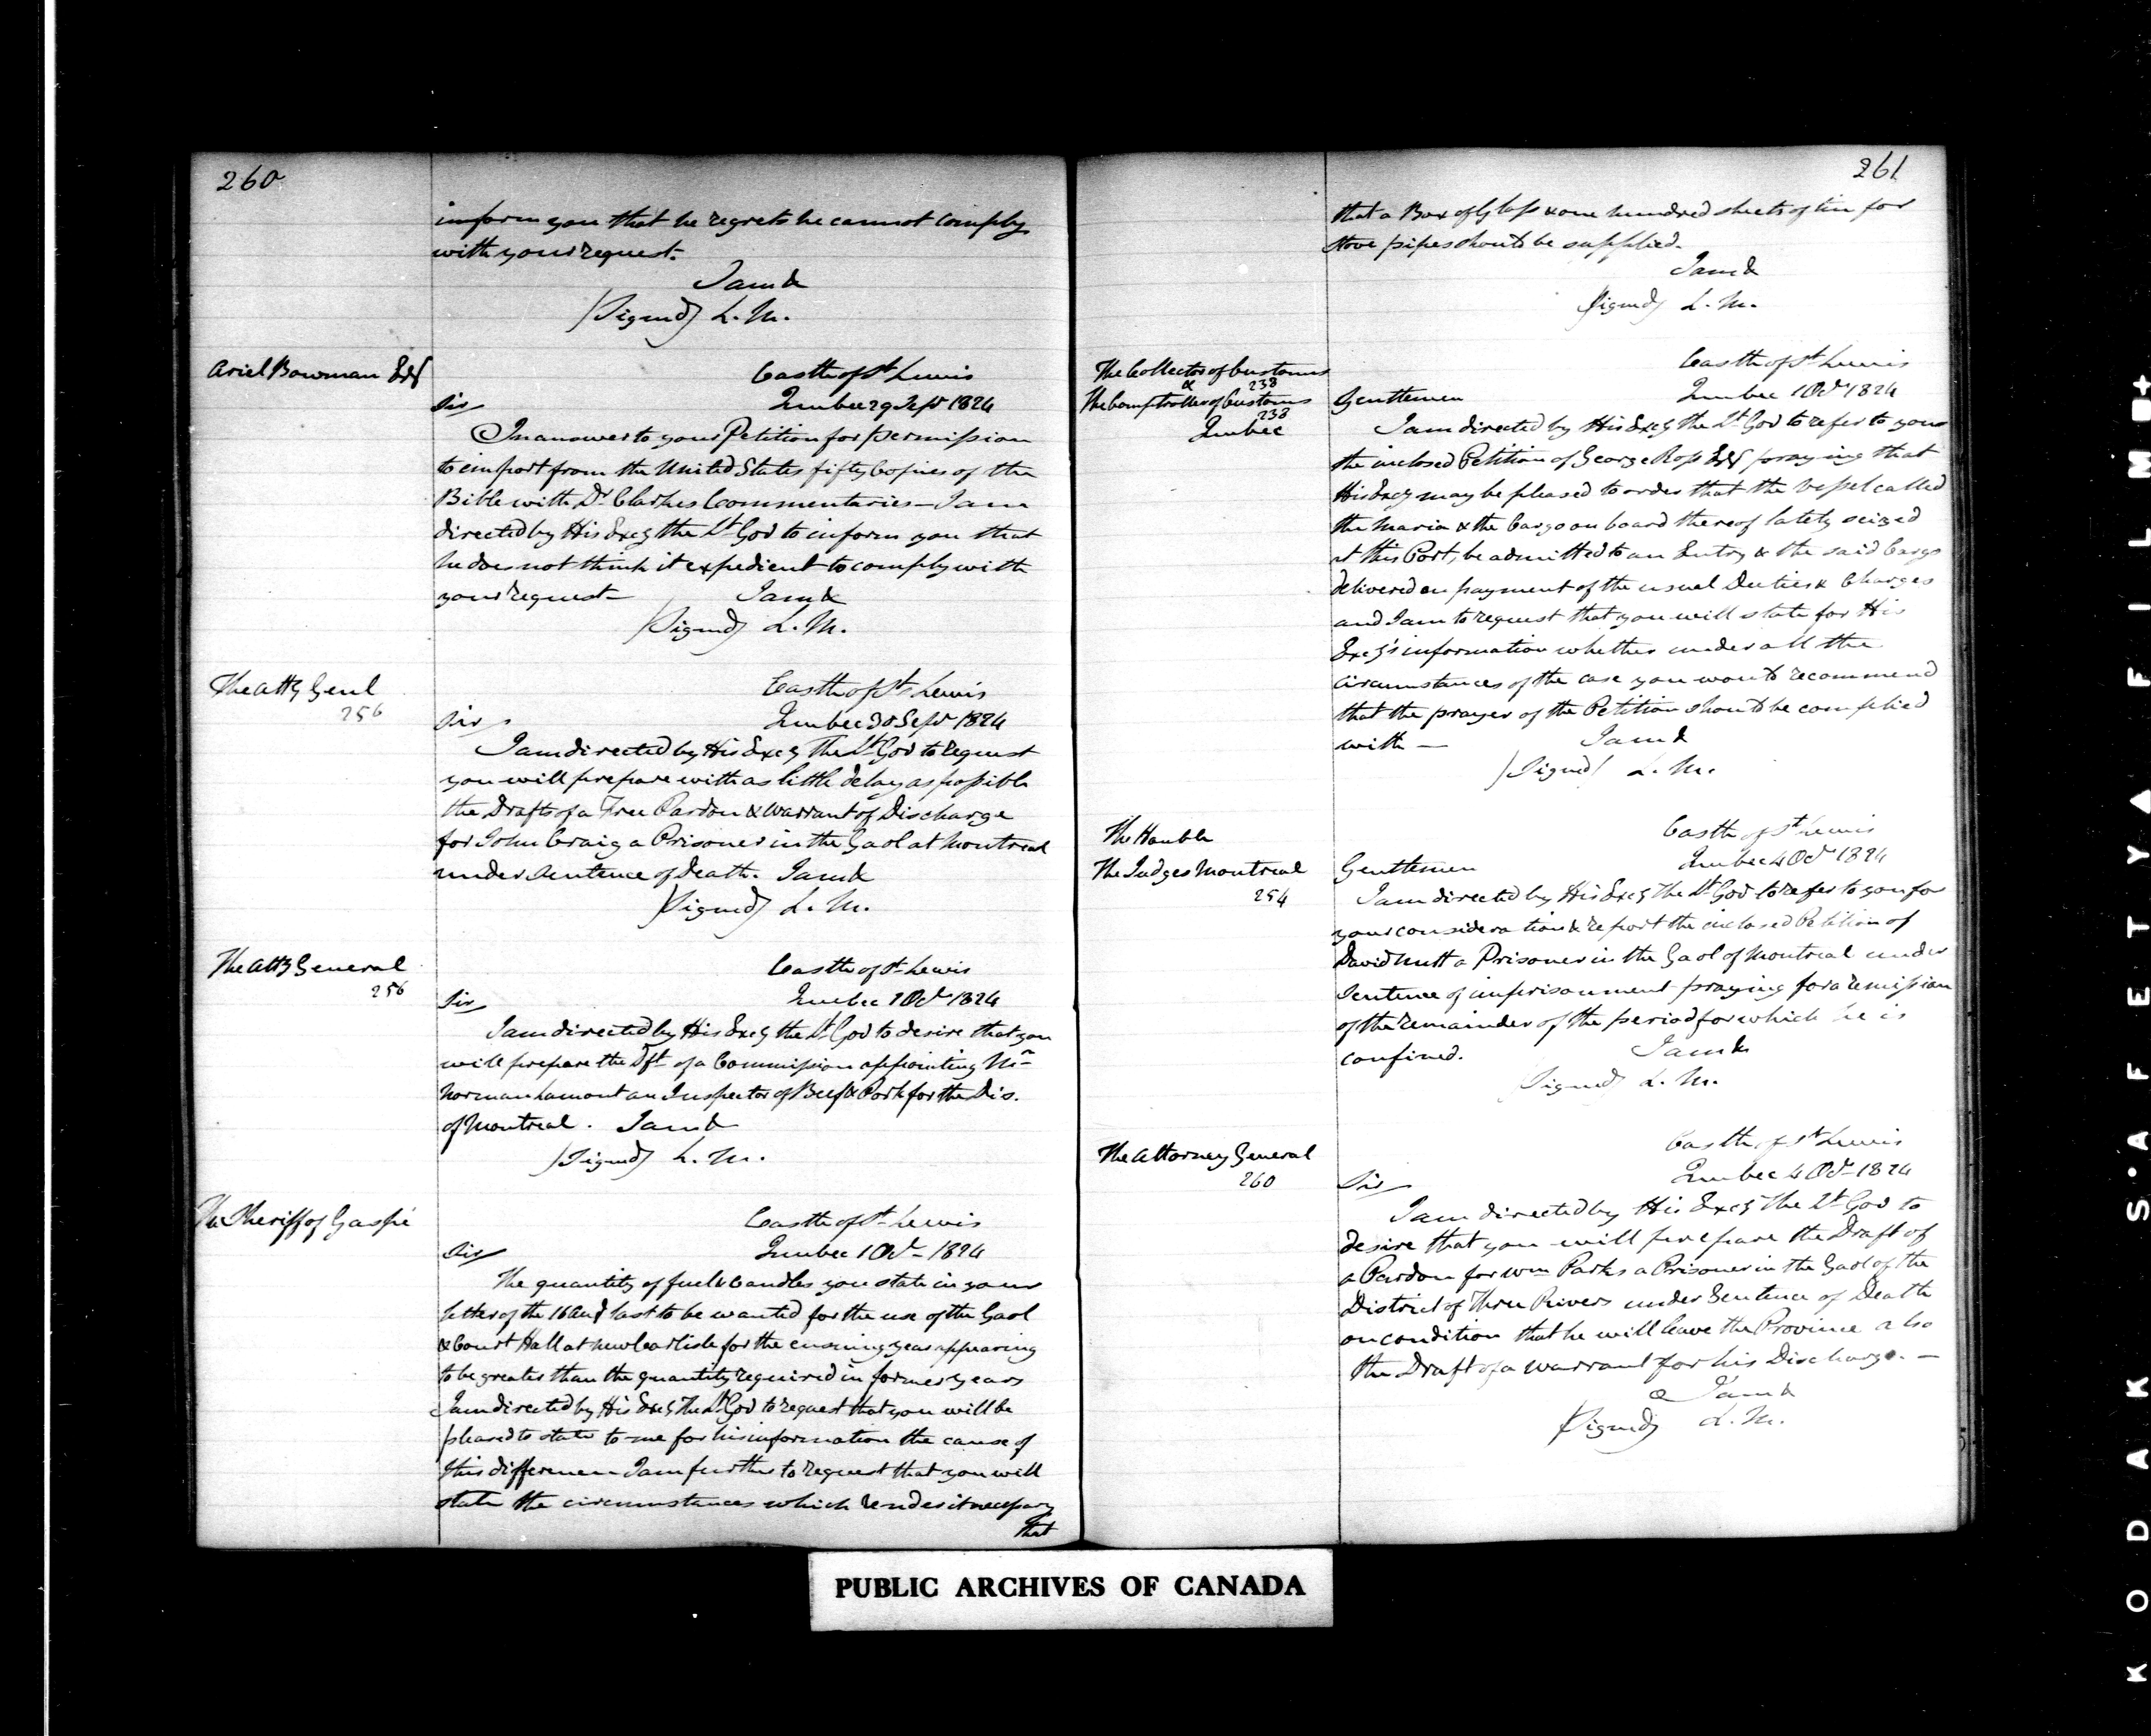 260
inform you that he regrets he cannot comply
with your request.
I am &
(Signed) L. M.
Ariel Bowman Esq
Castle of St Lewis
Sir
Quebec 29 Sepr 1824
In answer to your Petition for permission
to import from the United States fifty Copies of the
Bible with Dr Clarkes Commentaries - I am
directed by His Excy the Lt Gov to inform you that
he does not think it expedient to comply with
your request - I am &
(Signed) L. M.
The Atty Genl
256
Castle of St Lewis
Sir
Quebec 30 Sepr 1824
I am directed by His Excy The Lt Gov to request
you will prepare with as little delay as possible
the Drafts of a Free Pardon & Warrant of Discharge
for John Craig a Prisoner in the Gaol at Montreal
under Sentence of Death. I am &
(Signed) L. M.
The Atty General
256
Castle of St Lewis
Sir
Quebec 1 Oct 1824
I am directed by His Excy the Lt Gov to desire that you
will prepare the Dft of a Commission appointing Mr
Norman Lamont an Inspector of Beef & Pork for the Dis.
of Montreal. I am &
(Signed) L. M.
The Sheriff of Gaspé
Castle of St Lewis
Sir
Quebec 1 Oct 1824
The quantity of fuel & Candles you state in your
letter of the 16 Augt last to be wanted for the use of the Gaol
& Court Hall at New Carlisle for the ensuing year appearing
to be greater than the quantity required in former years
I am directed by His Excy The Lt Gov to request that you will be
pleased to state to me for his information the cause of
this difference I am further to request that you will
state the circumstances which renders it necessary
that
261
that a Box of Glass & one hundred sheets of tin for
stove pipes should be supplied.
I am &
(Signed) L. M.
The Collector of Customs
& 238
The Comptroller of Customs
238
Quebec
Castle of St Lewis
Gentlemen
Quebec 1 Oct 1824
I am directed by His Excy the Lt Gov to refer to you
the inclosed Petition of George Ross Esq praying that
His Excy may be pleased to order that the Vessel called
the Maria & the Cargo on board thereof lately seized
at this Port, be admitted to an Entry & the said Cargo
delivered on payment of the usual Duties & Charges
and I am to request that you will state for His
Excy's information whether under all the
circumstances of the case you would recommend
that the prayer of the Petition should be complied
with — I am &
(Signed) L. M.
The Honble
The Judges Montreal
254
Castle of St Lewis
Gentlemen
Quebec 4 Oct 1824
I am directed by His Excy The Lt Gov to refer to you for
your consideration & report the inclosed Petition of
David Nutt a Prisoner in the Gaol of Montreal under
Sentence of imprisonment praying for a remission
of the remainder of the period for which he is
confined. I am &
(Signed) L. M.
The Attorney General
260
Castle of St Lewis
Sir
Quebec 4 Oct 1824
I am directed by His Excy The Lt Gov to
desire that you will prepare the Draft of
a Pardon for Wm Parks a Prisoner in the Gaol of the
District of Three Rivers under Sentence of Death
on condition that he will leave the Province also
the Draft of a Warrant for his Discharge. —
I am &
(Signed) L. M.
PUBLIC ARCHIVES OF CANADA
KODAK S'AFETY▲FILM